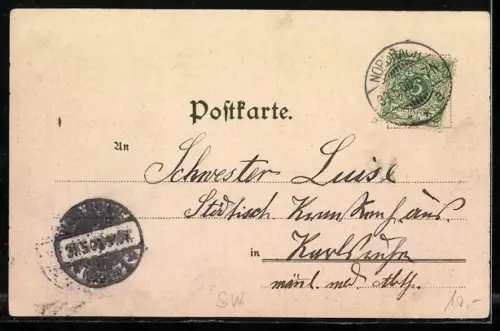 NORDRACH
5
Postkarte.
An
Schwester Luise
Städtisch Krankenhaus
in
Karlsruhe
männl. med. Abth.
SW
10.-